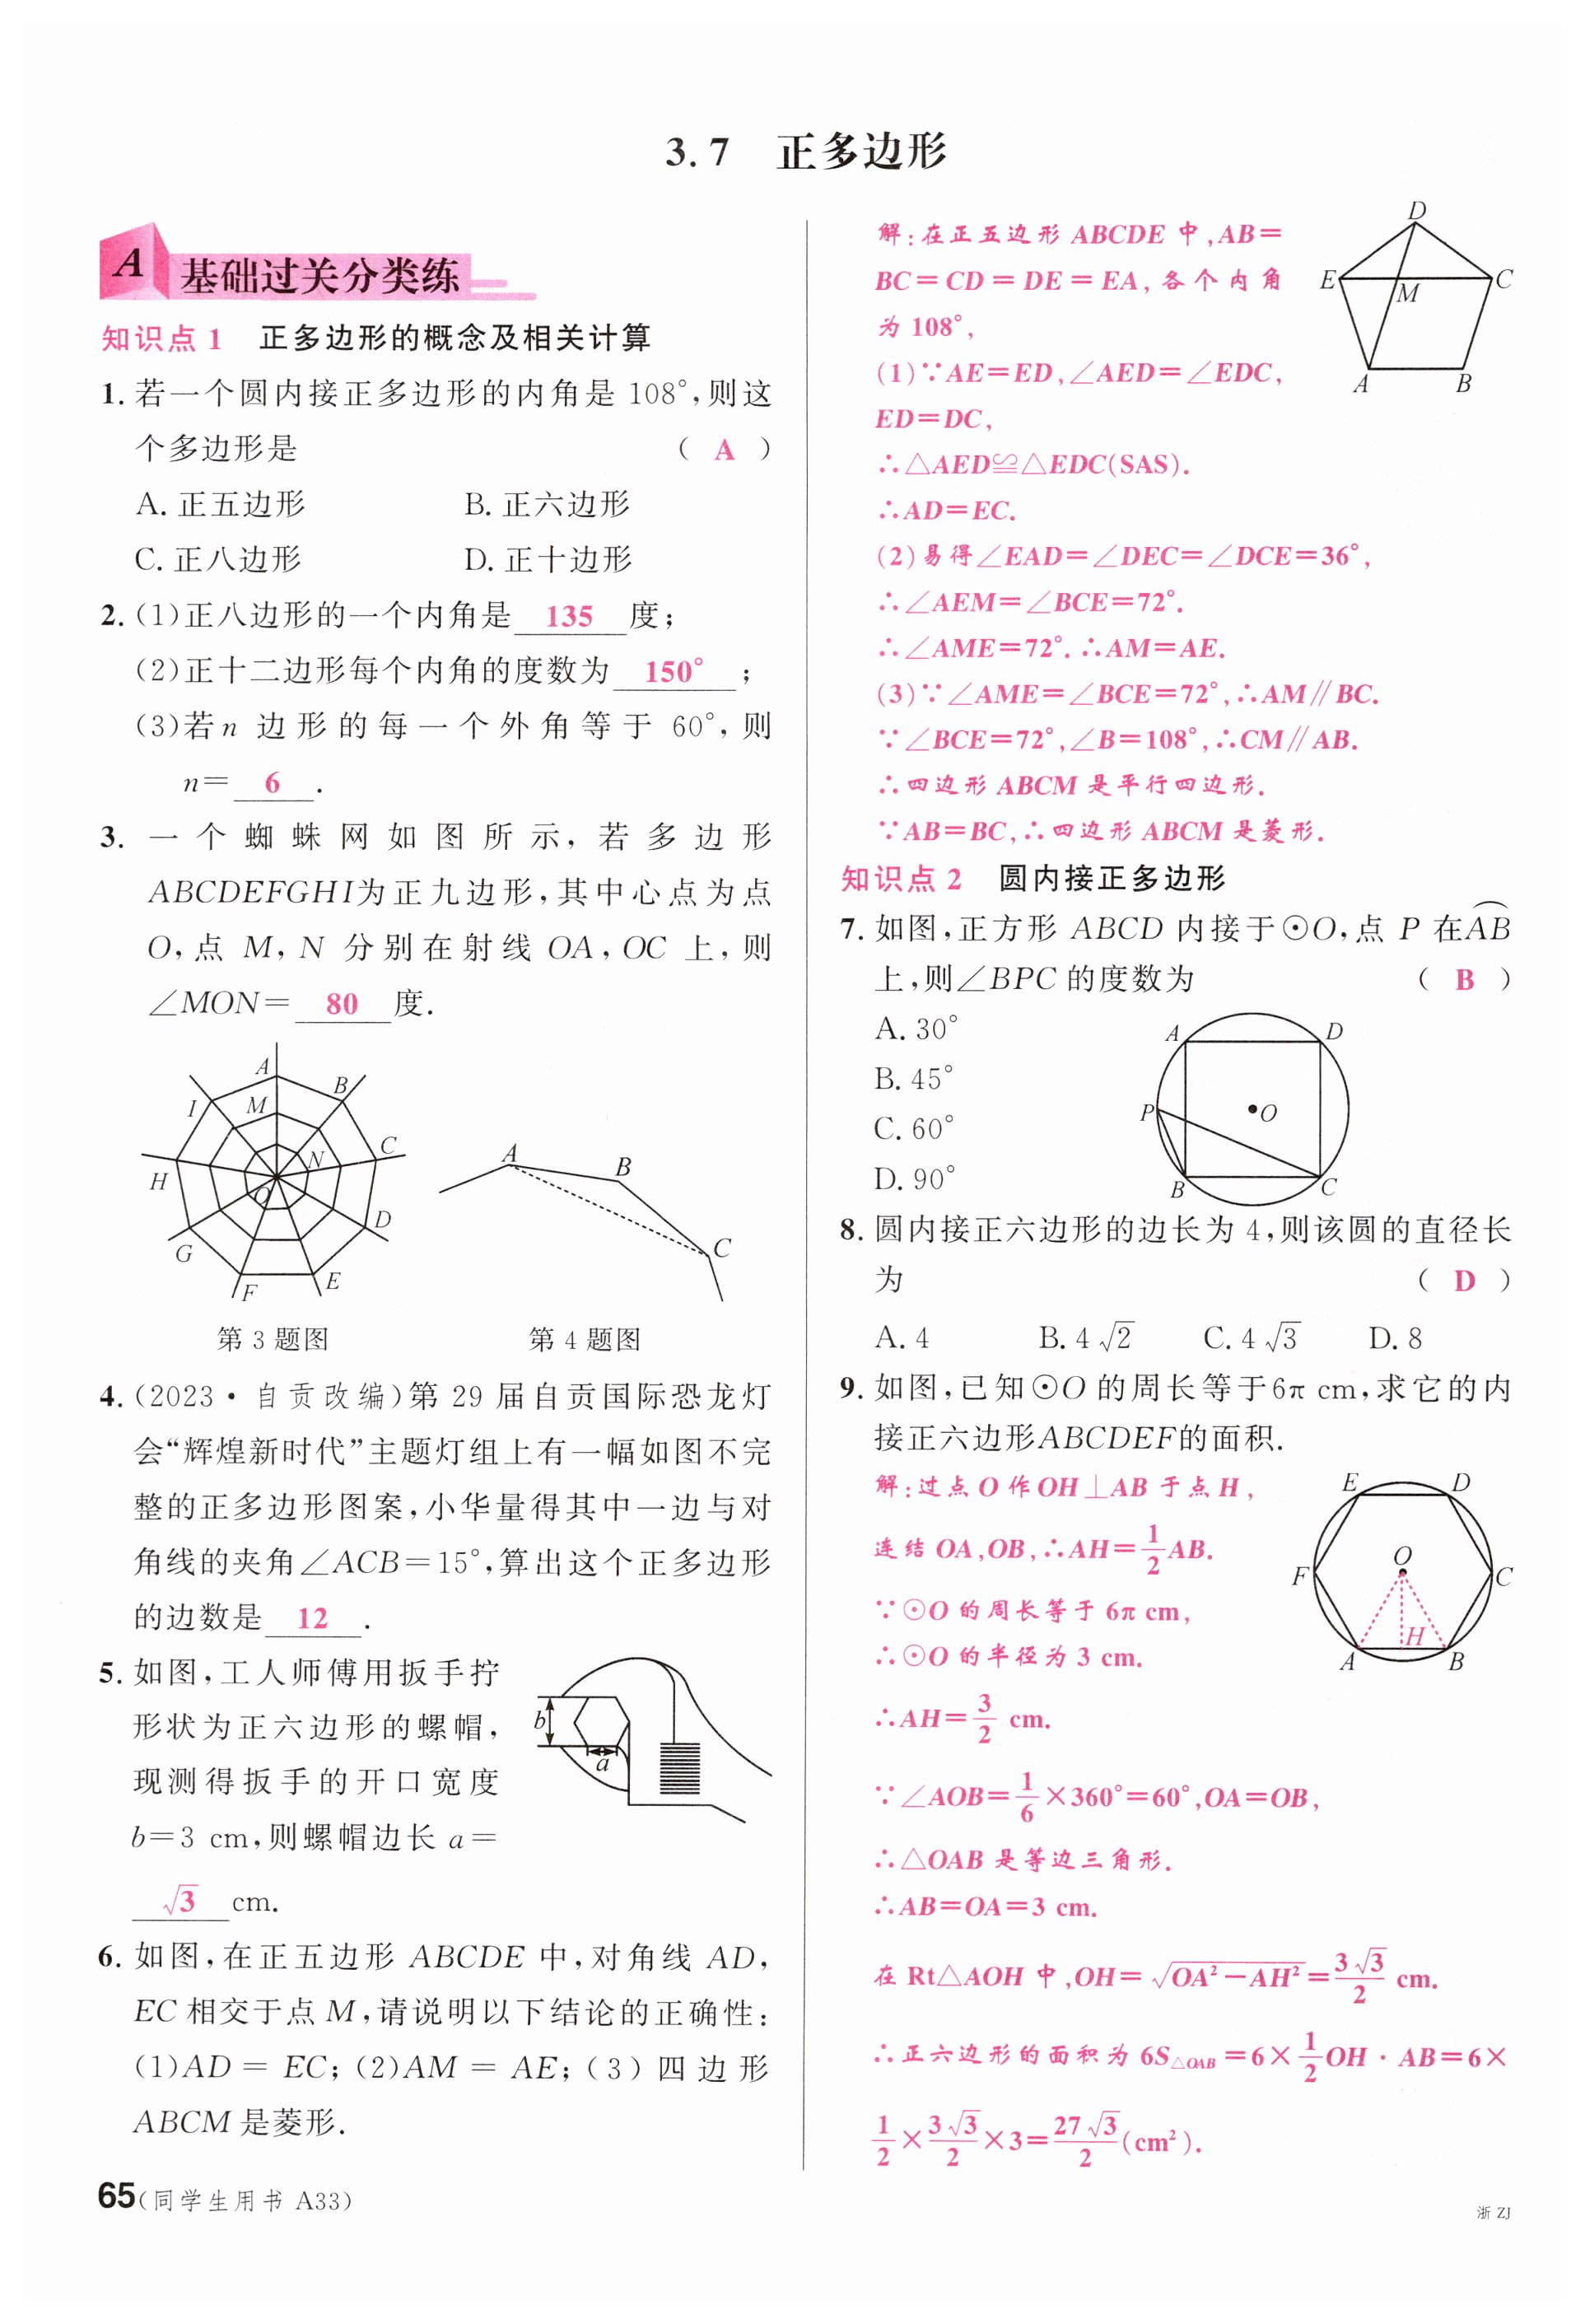 3.7 正多边形
A 基础过关分类练
知识点 1 正多边形的概念及相关计算
1. 若一个圆内接正多边形的内角是 108°,则这
个多边形是 ( A )
A. 正五边形 B. 正六边形
C. 正八边形 D. 正十边形
2. (1)正八边形的一个内角是 135 度;
(2)正十二边形每个内角的度数为 150° ;
(3)若 n 边形的每一个外角等于 60°,则
n= 6 .
3. 一个蜘蛛网如图所示,若多边形
ABCDEFGHI为正九边形,其中心点为点
O,点 M,N 分别在射线 OA,OC 上,则
∠MON= 80 度.
A
B
I
M
C
N
H
O
D
G
F
E
A
B
C
第 3 题图 第 4 题图
4. (2023·自贡改编)第 29 届自贡国际恐龙灯
会“辉煌新时代”主题灯组上有一幅如图不完
整的正多边形图案,小华量得其中一边与对
角线的夹角∠ACB=15°,算出这个正多边形
的边数是 12 .
5. 如图,工人师傅用扳手拧
形状为正六边形的螺帽,
现测得扳手的开口宽度
b=3 cm,则螺帽边长 a=
√3 cm.
b
a
6. 如图,在正五边形 ABCDE 中,对角线 AD,
EC 相交于点 M,请说明以下结论的正确性:
(1)AD = EC; (2)AM = AE; (3) 四边形
ABCM 是菱形.
65(同学生用书 A33)
解:在正五边形 ABCDE 中,AB=
BC=CD=DE=EA,各个内角
为 108°,
(1)∵AE=ED,∠AED=∠EDC,
ED=DC,
∴△AED≌△EDC(SAS).
∴AD=EC.
(2)易得∠EAD=∠DEC=∠DCE=36°,
∴∠AEM=∠BCE=72°.
∴∠AME=72°.∴AM=AE.
(3)∵∠AME=∠BCE=72°,∴AM∥BC.
∵∠BCE=72°,∠B=108°,∴CM∥AB.
∴四边形 ABCM 是平行四边形.
∵AB=BC,∴四边形 ABCM 是菱形.
D
E
M
C
A
B
知识点 2 圆内接正多边形
7. 如图,正方形 ABCD 内接于⊙O,点 P 在⌒AB
上,则∠BPC 的度数为 ( B )
A. 30°
B. 45°
C. 60°
D. 90°
A
D
P
O
B
C
8. 圆内接正六边形的边长为 4,则该圆的直径长
为 ( D )
A. 4 B. 4√2 C. 4√3 D. 8
9. 如图,已知⊙O 的周长等于6π cm,求它的内
接正六边形ABCDEF的面积.
解:过点 O 作 OH⊥AB 于点 H,
连结 OA,OB,∴AH=1/2AB.
∵⊙O 的周长等于 6π cm,
∴⊙O 的半径为 3 cm.
∴AH=3/2 cm.
∵∠AOB=1/6×360°=60°,OA=OB,
∴△OAB 是等边三角形.
∴AB=OA=3 cm.
在 Rt△AOH 中,OH=√(OA²-AH²)=3√3/2 cm.
∴正六边形的面积为 6S△OAB=6×1/2OH·AB=6×
1/2×3√3/2×3=27√3/2(cm²).
E
D
O
F
C
H
A
B
浙 ZJ